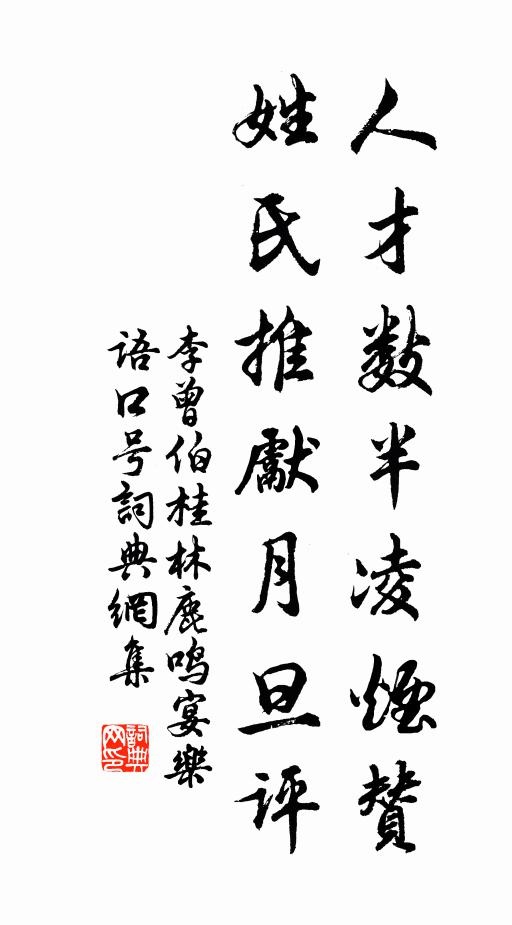 人才数半凌煙赞
姓氏推獻月旦评
李曾伯桂林鹿鸣宴樂
语口号詞典網集
詞典
网印